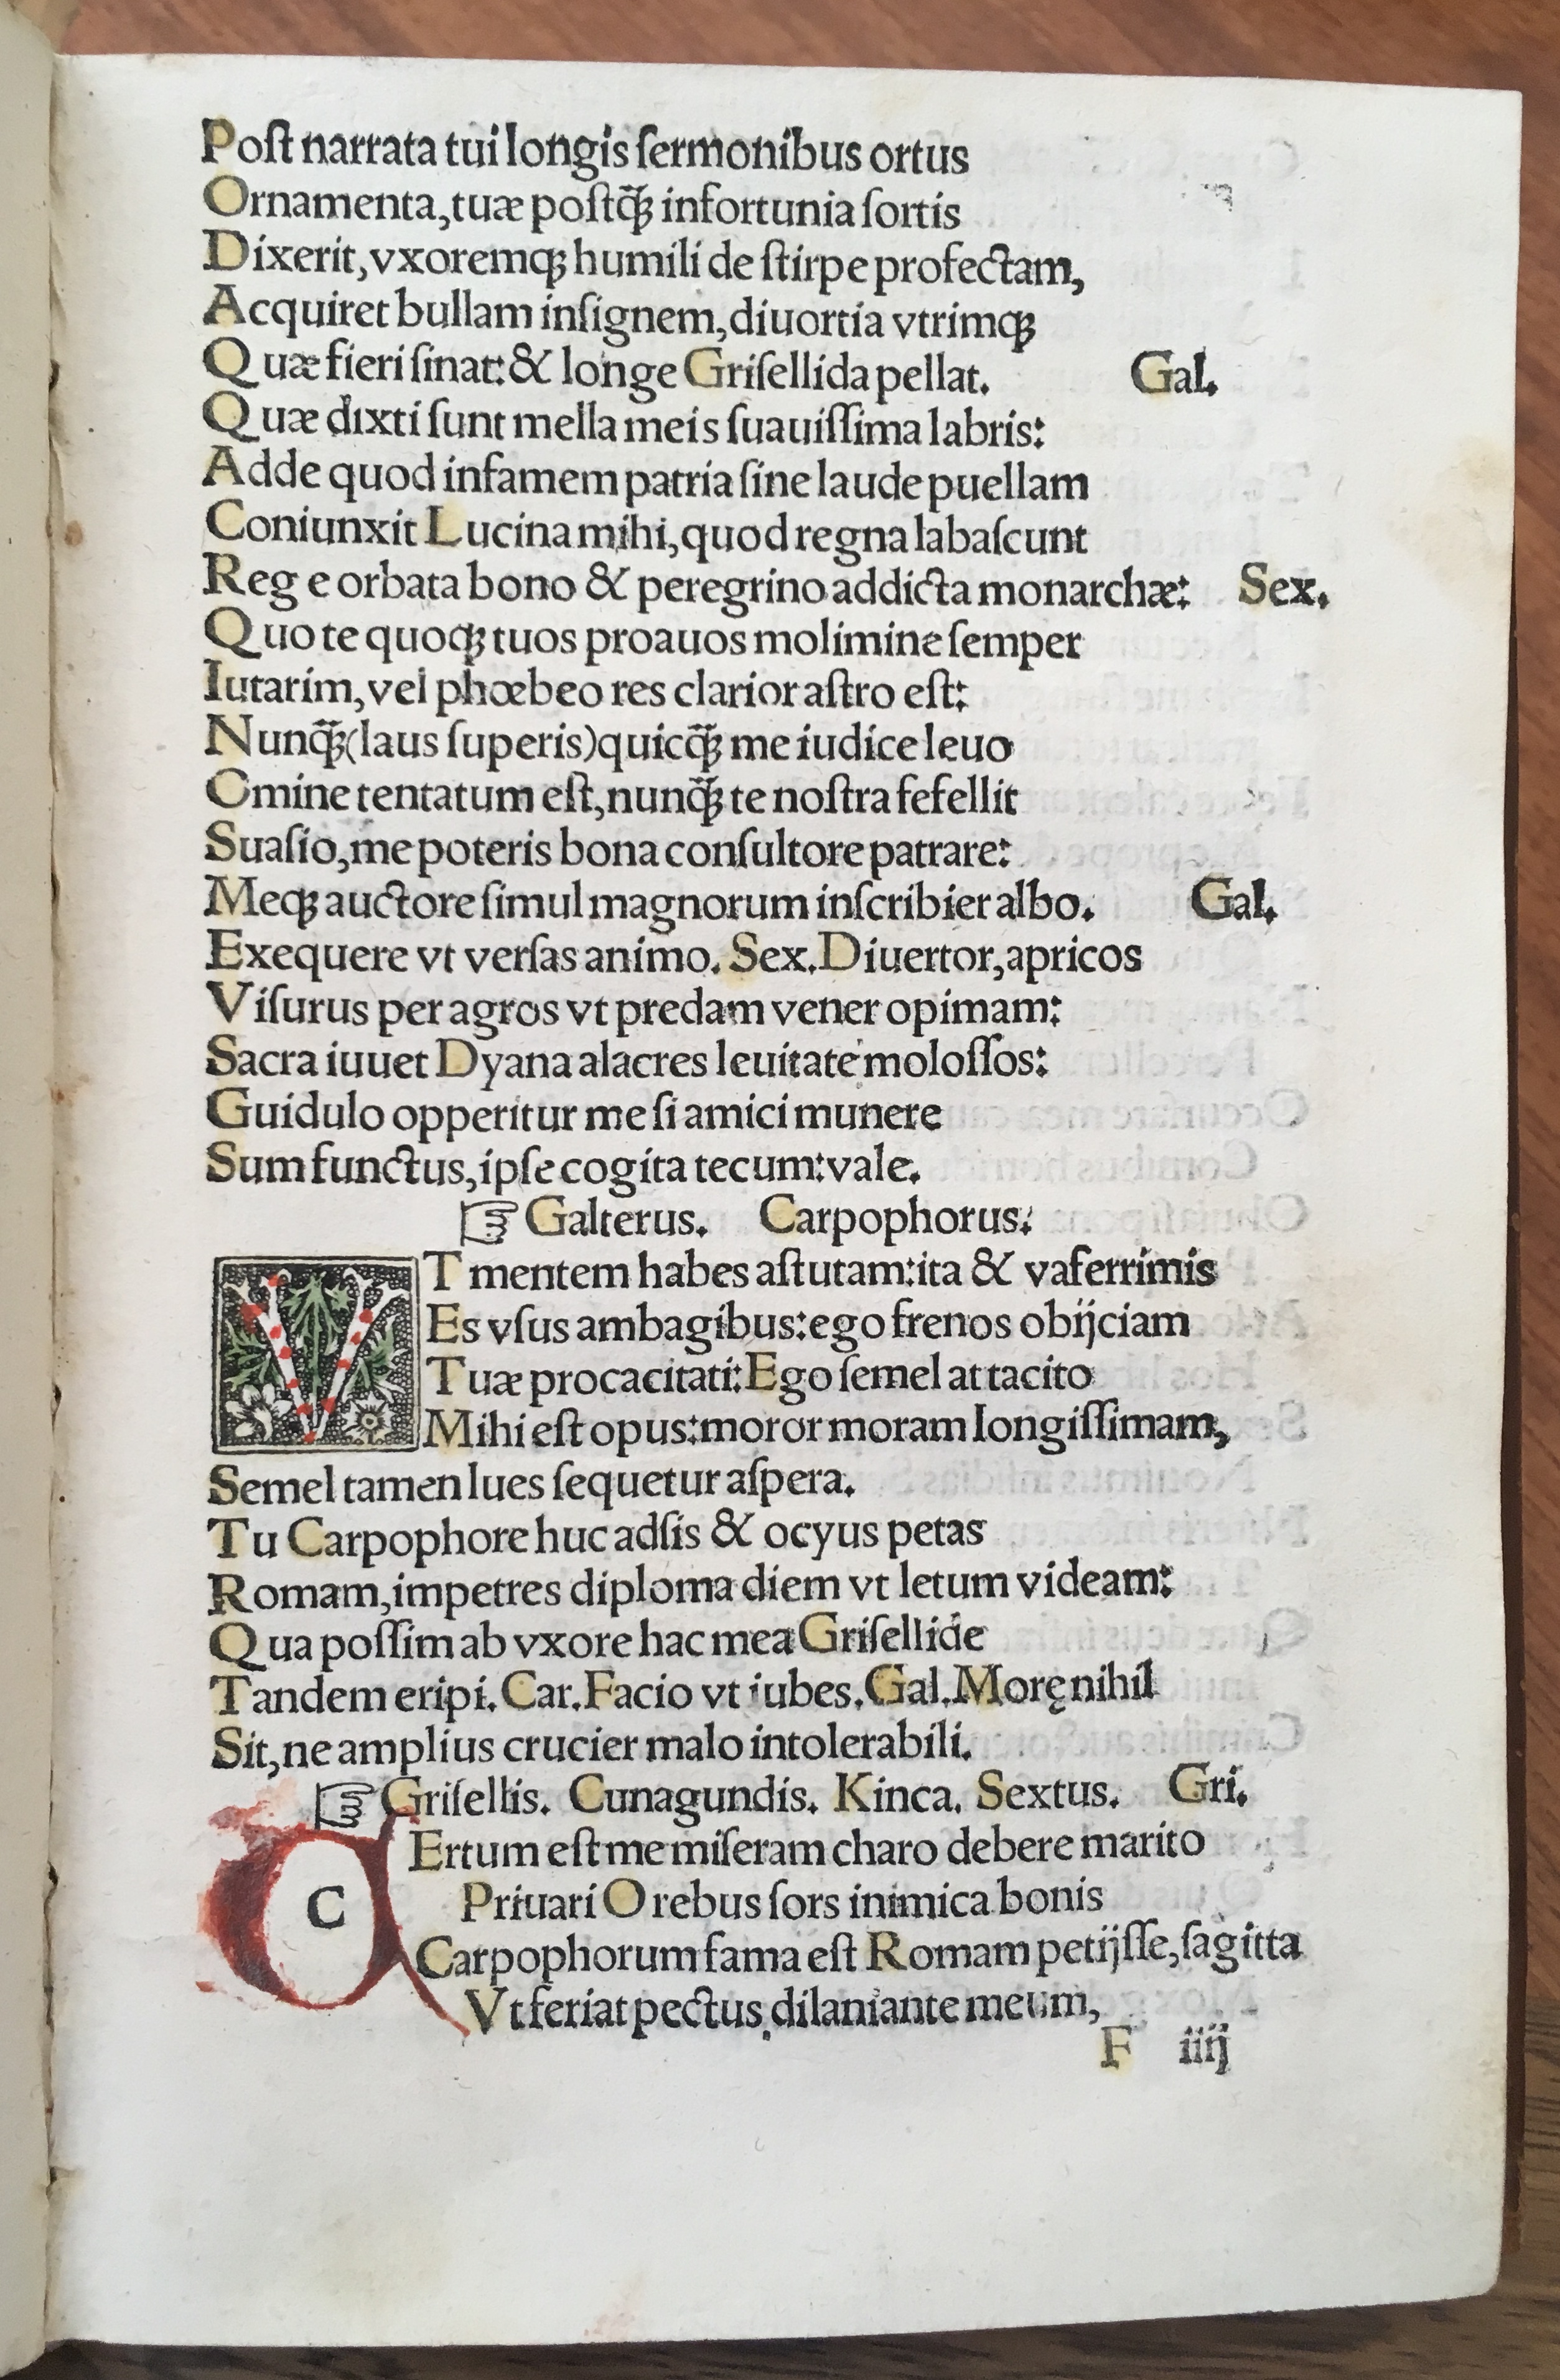 Poſt narrata tui longis ſermonibus ortus
Ornamenta, tuæ poſtq̃ꝫ infortunia ſortis
Dixerit, vxoremqꝫ humili de ſtirpe profectam,
Acquiret bullam inſignem, diuortia vtrimqꝫ
Quæ fieri ſinat: & longe Griſellida pellat. Gal.
Quæ dixti ſunt mella meis ſuauiſſima labris:
Adde quod infamem patria ſine laude puellam
Coniunxit Lucina mihi, quod regna labaſcunt
Rege orbata bono & peregrino addicta monarchæ: Sex.
Quo te quoqꝫ tuos proauos molimine ſemper
Iutarim, vel phœbeo res clarior aſtro eſt:
Nunq̃ꝫ (laus ſuperis) quicq̃ꝫ me iudice leuo
Omine tentatum eſt, nunq̃ꝫ te noſtra fefellit
Suaſio, me poteris bona conſultore patrare:
Meqꝫ auctore ſimul magnorum inſcribier albo. Gal.
Exequere vt verſas animo. Sex. Diuertor, apricos
Viſurus per agros vt predam vener opimam:
Sacra iuuet Dyana alacres leuitate moloſſos:
Guidulo opperitur me ſi amici munere
Sum functus, ipſe cogita tecum: vale.
☞ Galterus. Carpophorus.
VT mentem habes aſtutam: ita & vaferrimis
Es vſus ambagibus: ego frenos obijciam
Tuæ procacitati: Ego ſemel at tacito
Mihi eſt opus: moror moram longiſſimam,
Semel tamen lues ſequetur aſpera.
Tu Carpophore huc adſis & ocyus petas
Romam, impetres diploma diem vt letum videam:
Qua poſſim ab vxore hac mea Griſellide
Tandem eripi. Car. Facio vt iubes. Gal. Morę nihil
Sit, ne amplius crucier malo intolerabili.
☞ Griſellis. Cunagundis. Kinca. Sextus. Gri.
CErtum eſt me miſeram charo debere marito
Priuari O rebus ſors inimica bonis
Carpophorum fama eſt Romam petijſſe, ſagitta
Vt feriat pectus dilaniante meum,
F iiij